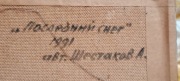 „Последний снег"
1991
авт. Шестаков А.